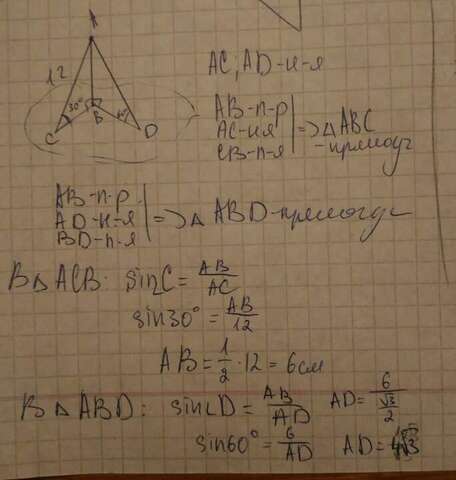 A
12
30°
C
B
60°
D
AC, AD-н-я
AB-п-р
AC-н-я
CB-п-я
=> △ ABC
-прямоуг
AB-п-р
AD-н-я
BD-п-я
=> △ ABD-прямоуг
В △ ACB: sin∠C = AB/AC
sin30° = AB/12
AB = 1/2 · 12 = 6см
В △ ABD: sin∠D = AB/AD AD = 6/(√3/2)
sin60° = 6/AD AD = 4√3